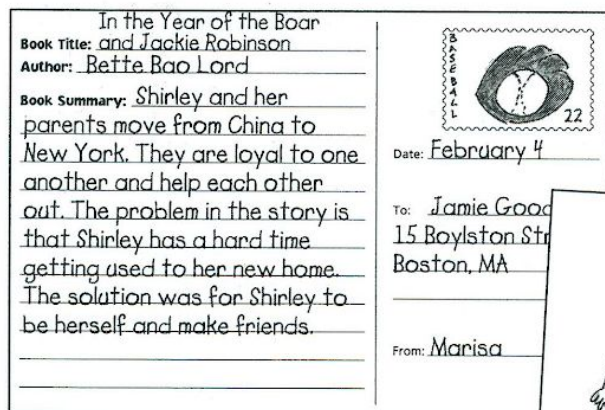 In the Year of the Boar
Book Title: and Jackie Robinson
Author: Bette Bao Lord
Book Summary: Shirley and her
parents move from China to
New York. They are loyal to one
another and help each other
out. The problem in the story is
that Shirley has a hard time
getting used to her new home.
The solution was for Shirley to
be herself and make friends.
BASEBALL
22
Date: February 4
To: Jamie
15 Boylston
Boston, MA
From: Marisa